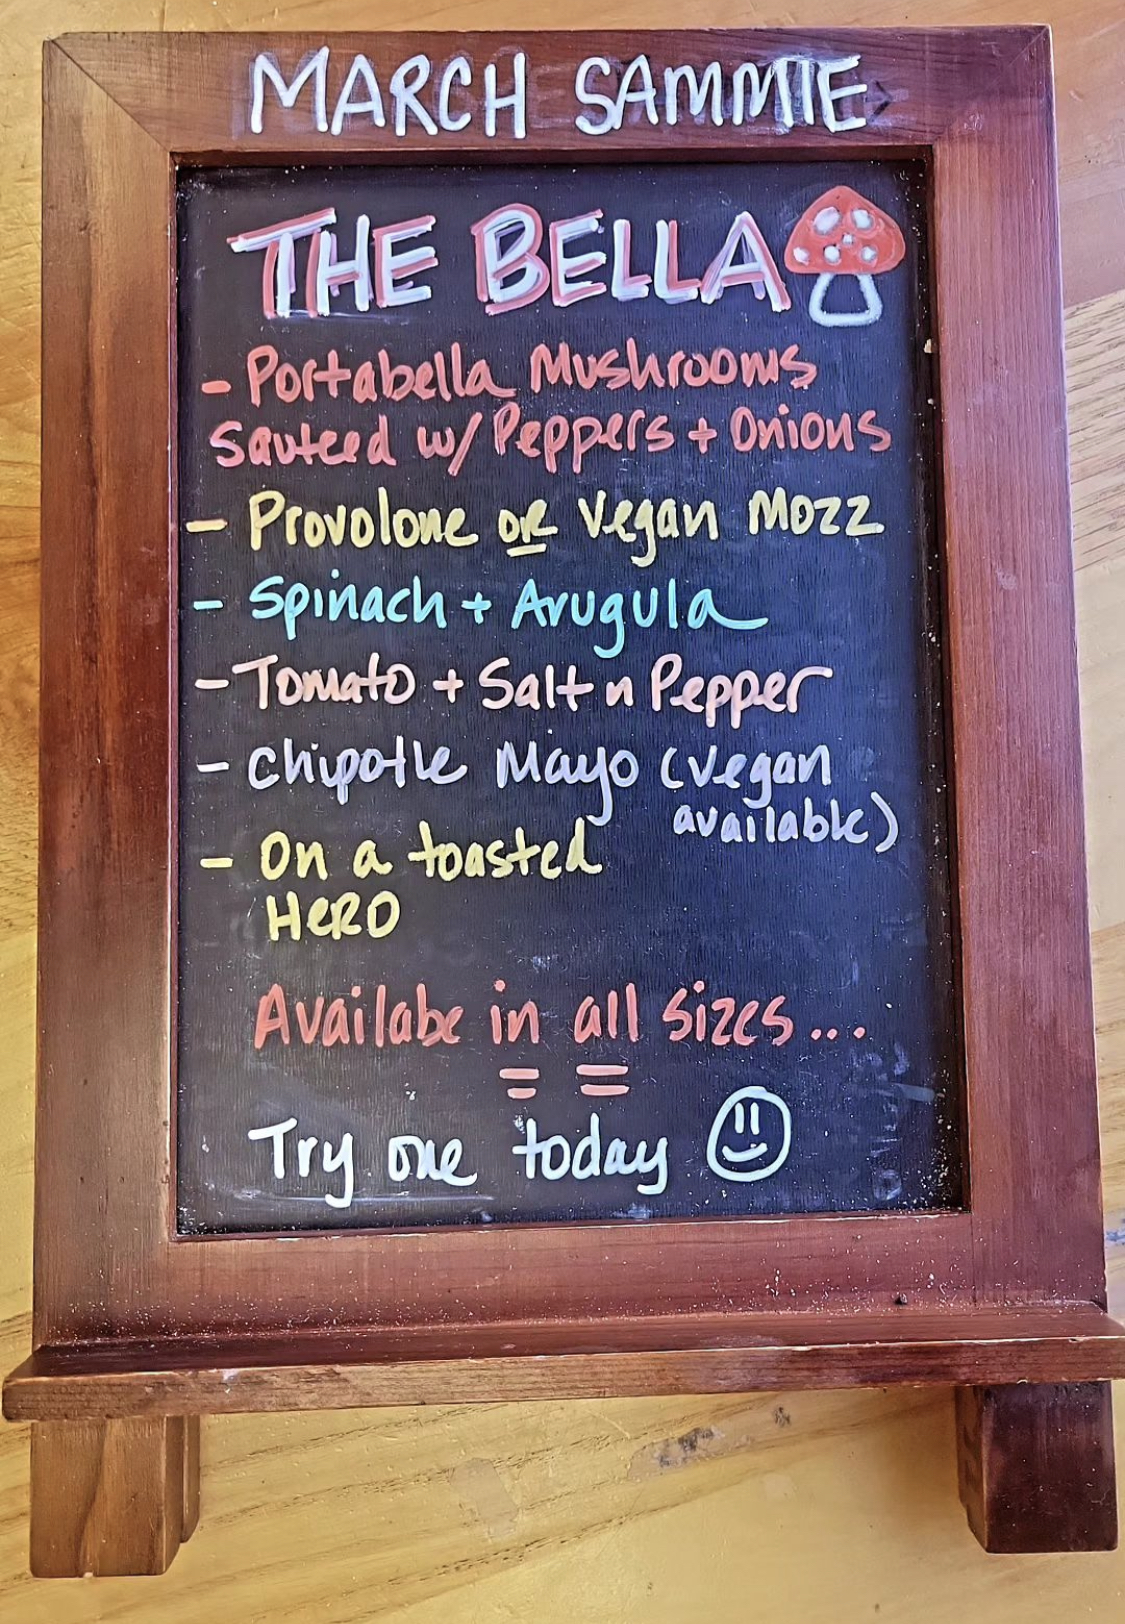 MARCH SAMMIE
THE BELLA
- Portabella Mushrooms
Sauteed w/ Peppers + Onions
- Provolone OR Vegan Mozz
- Spinach + Arugula
- Tomato + Salt n Pepper
- Chipotle Mayo (vegan
available)
- On a toasted
HERO
Availabe in all sizes...
Try one today